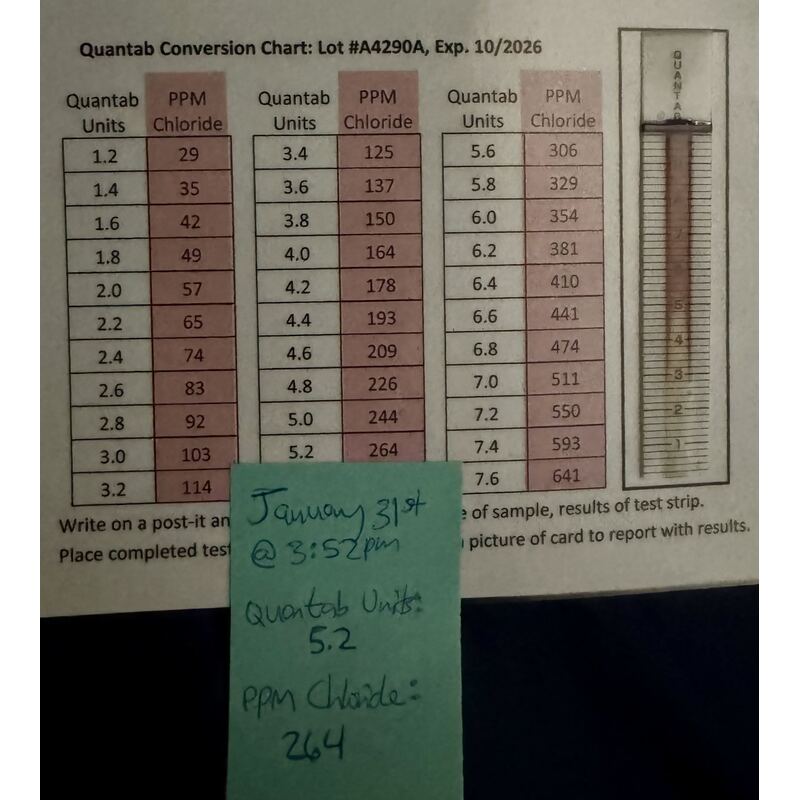 Quantab Conversion Chart: Lot #A4290A, Exp. 10/2026
Quantab Units PPM Chloride
1.2 29
1.4 35
1.6 42
1.8 49
2.0 57
2.2 65
2.4 74
2.6 83
2.8 92
3.0 103
3.2 114
Quantab Units PPM Chloride
3.4 125
3.6 137
3.8 150
4.0 164
4.2 178
4.4 193
4.6 209
4.8 226
5.0 244
5.2 264
Quantab Units PPM Chloride
5.6 306
5.8 329
6.0 354
6.2 381
6.4 410
6.6 441
6.8 474
7.0 511
7.2 550
7.4 593
7.6 641
QUANTAB
7
5
4
3
2
1
Write on a post-it an
e of sample, results of test strip.
Place completed test
picture of card to report with results.
January 31st
@ 3:52pm
Quantab Units:
5.2
PPM Chloride:
264